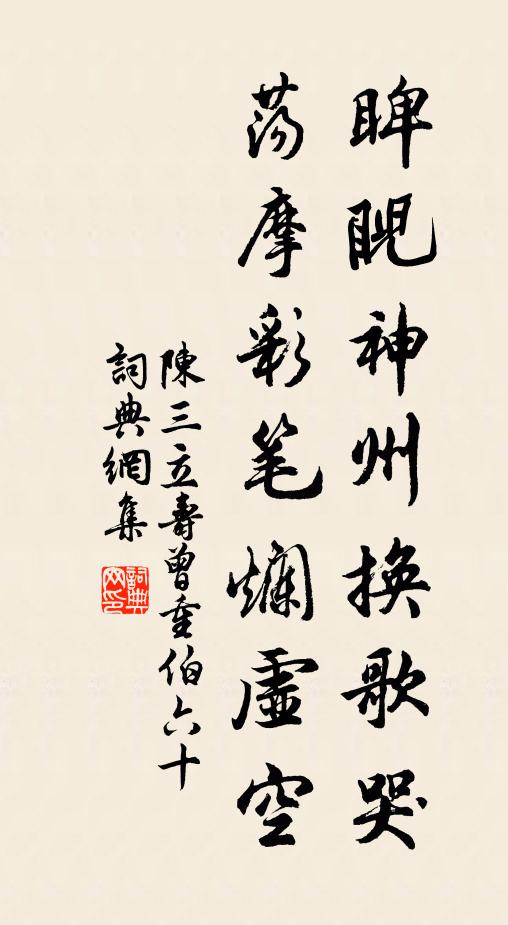 睥睨神州換歌哭
蕩摩彩笔爛虛空
陳三立壽曾重伯六十
詞典網集
詞典网印